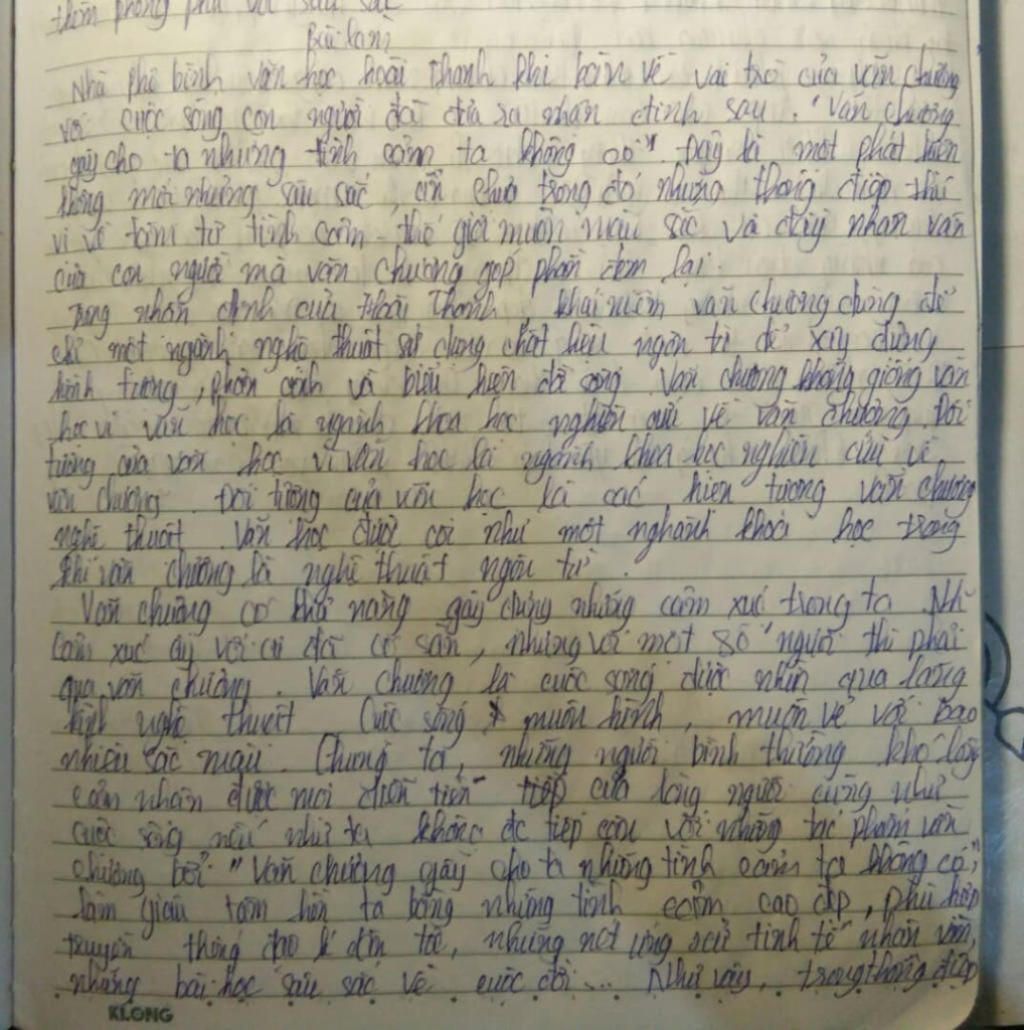 thêm phong phú và sâu sắc
Bài làm
Nhà phê bình văn học hoài thanh khi bàn về vai trò của văn chương
với cuộc sống con người đã đưa ra nhân định sau. "Văn chương
gây cho ta nhưng tình cảm ta không có". Đây là một phát hiện
không mới nhưng sâu sắc, ẩn chưa trong đó nhưng thông điệp thú
vị về tâm tư tình cảm - thế giới muôn màu sắc và đầy nhân văn
của con người mà văn chương góp phần đem lại.
Trong nhân định của Hoài Thanh, khái niêm văn chương dùng để
chỉ một ngành nghệ thuật sử dụng chất liệu ngôn từ để xây dựng
hình tương, phản ánh và biểu hiện đời sống. Văn chương không giống văn
học vì văn học là ngành khoa học nghiên cứu về văn chương. Đối
tượng của văn học vì văn học là ngành khoa học nghiên cứu về
văn chương. Đối tượng của văn học là các hiện tương văn chương
nghệ thuật. Văn học được coi như một nghành khoa học trong
khi văn chương là nghệ thuật ngôn từ.
Văn chương có khả năng gây dựng những cảm xúc trong ta. Nh
cảm xúc ấy với đã có sẵn, nhưng với một số người thì phải
qua văn chương. Văn chương là cuộc sống được nhìn qua lăng
kính nghệ thuật. Cuộc sống muôn hình, muôn vẻ với bao
nhiêu sắc màu. Chúng ta, những người bình thường khó lòng
cảm nhận được mọi diễn tiến tiếp của lòng người cũng như
cuộc sống nếu như ta không đc tiếp cận với những tác phẩm văn
chương bởi "Văn chương gây cho ta những tình cảm ta không có",
làm giàu tâm hồn ta bằng những tình cảm cao đẹp, phù hợp
truyền thống đạo lí dân tộc, những nét ứng xử tinh tế nhân văn,
những bài học sâu sắc về cuộc đời... Như vậy, trong thông điệp
KLONG